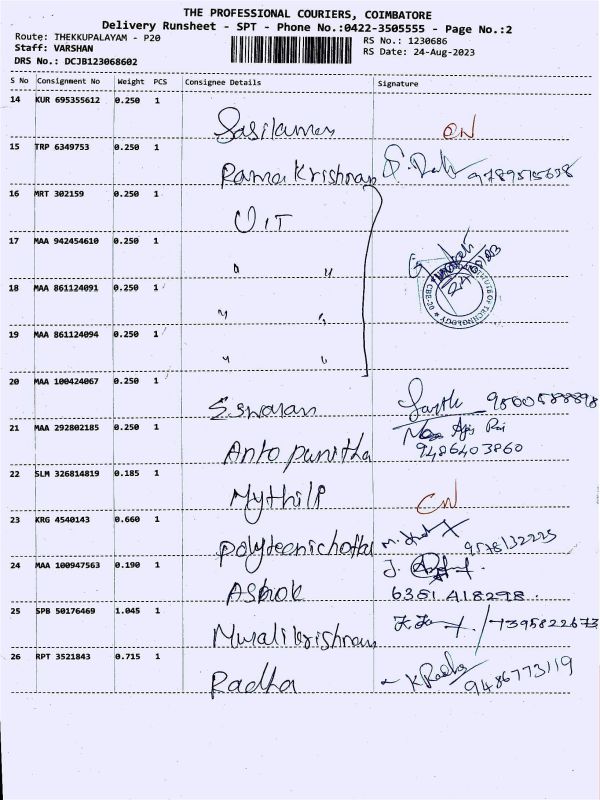 THE PROFESSIONAL COURIERS, COIMBATORE
Delivery Runsheet - SPT - Phone No.:0422-3505555 - Page No.:2
Route: THEKKUPALAYAM - P20
RS No.: 1230686
Staff: VARSHAN
RS Date: 24-Aug-2023
DRS No.: DCJB123068602
S No Consignment No Weight PCS Consignee Details Signature
14 KUR 695355612 0.250 1
Sasikumar
15 TRP 6349753 0.250 1
Ramakrishnan 9789515638
16 MRT 302159 0.250 1
UIT
17 MAA 942454610 0.250 1
" "
18 MAA 861124091 0.250 1
" "
19 MAA 861124094 0.250 1
" "
20 MAA 100424067 0.250 1
Eswaran
21 MAA 292802185 0.250 1
Anto punitha 9486403860
22 SLM 326814819 0.185 1
Mythili CN
23 KRG 4540143 0.660 1
24 MAA 100947563 0.190 1
Ashok 6351418298
25 SPB 50176469 1.045 1
Muralikrishnan
26 RPT 3521843 0.715 1
Radha K Radha 9486773119